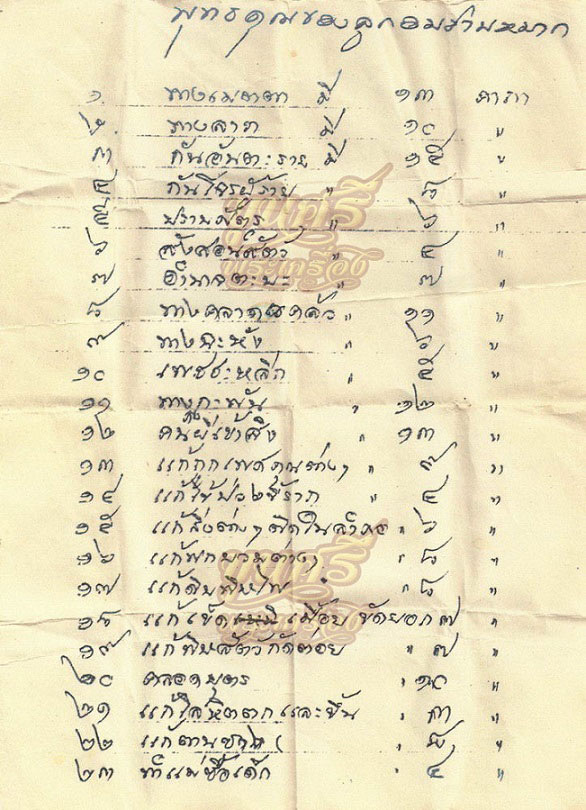 พุทธคุณของลูกอมชานหมาก
๑. ทางเมตตา มี ๑๓ คาถา
๒. ทางลาภ มี ๑๐ "
๓ กันอันตะราย มี ๑๕ "
๔ กันโจรผู้ร้าย " ๘ "
๕ ปราบศัตรู " ๖ "
๖ สั่งสอนสัตว์ " ๔ "
๗ อำนาจตะบะ " ๗ "
๘ ทางคลาดแคล้ว " ๑๑ "
๙ ทางจะหัง " ๖ "
๑๐ เพชชะหลีก " ๕ "
๑๑ ทางคะพัน " ๑๒ "
๑๒ คนผีเข้าสิง " ๑๓ "
๑๓ แก้ถูกเพศคุณต่างๆ " ๙ "
๑๔ แก้ไข้ป่วง " ๔ "
๑๕ แก้สิ่งต่างๆติดในลำคอ " ๖ "
๑๖ แก้ฟกบวมต่างๆ " ๘ "
๑๗ แก้ดับพิษไฟ " ๘ "
๑๘ แก้ขัด เมื่อย ขัดยอก ๗ "
๑๙ แก้พิษสัตว์กัดต่อย " ๗ "
๒๐ คลอดบุตร " ๑๐ "
๒๑ แก้โลหิตตกและขึ้น " ๓ "
๒๒ แก้ตานซาง " ๘ "
๒๓ ทำแม่ซื้อเด็ก " ๔ "
พระเครื่อง